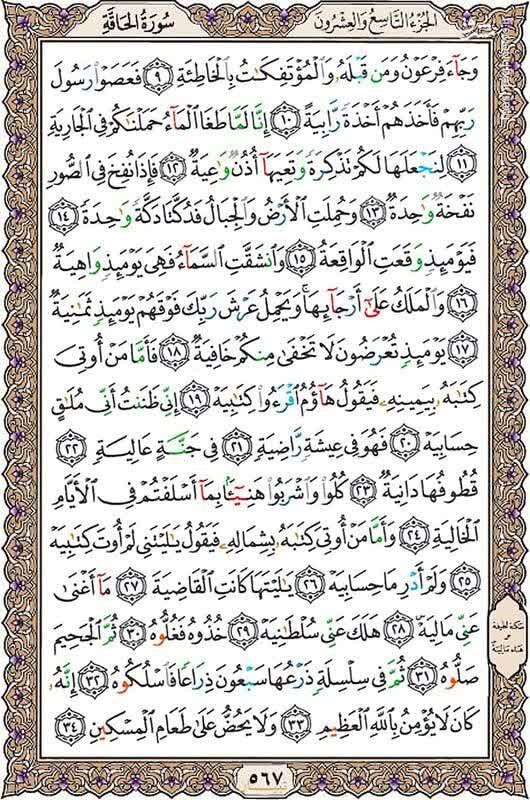 سُورَةُ الحَاقَّةِ
الجُزءُ التَّاسِعُ وَالعِشْرُونَ
وَجَآءَ فِرْعَوْنُ وَمَن قَبْلَهُۥ وَٱلْمُؤْتَفِكَٰتُ بِٱلْخَاطِئَةِ ٩ فَعَصَوْا۟ رَسُولَ
رَبِّهِمْ فَأَخَذَهُمْ أَخْذَةً رَّابِيَةً ١٠ إِنَّا لَمَّا طَغَا ٱلْمَآءُ حَمَلْنَٰكُمْ فِى ٱلْجَارِيَةِ
١١ لِنَجْعَلَهَا لَكُمْ تَذْكِرَةً وَتَعِيَهَآ أُذُنٌ وَٰعِيَةٌ ١٢ فَإِذَا نُفِخَ فِى ٱلصُّورِ
نَفْخَةٌ وَٰحِدَةٌ ١٣ وَحُمِلَتِ ٱلْأَرْضُ وَٱلْجِبَالُ فَدُكَّتَا دَكَّةً وَٰحِدَةً ١٤
فَيَوْمَئِذٍ وَقَعَتِ ٱلْوَاقِعَةُ ١٥ وَٱنشَقَّتِ ٱلسَّمَآءُ فَهِىَ يَوْمَئِذٍ وَاهِيَةٌ
١٦ وَٱلْمَلَكُ عَلَىٰٓ أَرْجَآئِهَا ۚ وَيَحْمِلُ عَرْشَ رَبِّكَ فَوْقَهُمْ يَوْمَئِذٍ ثَمَٰنِيَةٌ
١٧ يَوْمَئِذٍ تُعْرَضُونَ لَا تَخْفَىٰ مِنكُمْ خَافِيَةٌ ١٨ فَأَمَّا مَنْ أُوتِىَ
كِتَٰبَهُۥ بِيَمِينِهِۦ فَيَقُولُ هَآؤُمُ ٱقْرَءُوا۟ كِتَٰبِيَهْ ١٩ إِنِّى ظَنَنتُ أَنِّى مُلَٰقٍ
حِسَابِيَهْ ٢٠ فَهُوَ فِى عِيشَةٍ رَّاضِيَةٍ ٢١ فِى جَنَّةٍ عَالِيَةٍ ٢٢
قُطُوفُهَا دَانِيَةٌ ٢٣ كُلُوا۟ وَٱشْرَبُوا۟ هَنِيٓـًٔۢا بِمَآ أَسْلَفْتُمْ فِى ٱلْأَيَّامِ
ٱلْخَالِيَةِ ٢٤ وَأَمَّا مَنْ أُوتِىَ كِتَٰبَهُۥ بِشِمَالِهِۦ فَيَقُولُ يَٰلَيْتَنِى لَمْ أُوتَ كِتَٰبِيَهْ
٢٥ وَلَمْ أَدْرِ مَا حِسَابِيَهْ ٢٦ يَٰلَيْتَهَا كَانَتِ ٱلْقَاضِيَةَ ٢٧ مَآ أَغْنَىٰ
عَنِّى مَالِيَهْ ۜ ٢٨ هَلَكَ عَنِّى سُلْطَٰنِيَهْ ٢٩ خُذُوهُ فَغُلُّوهُ ٣٠ ثُمَّ ٱلْجَحِيمَ
صَلُّوهُ ٣١ ثُمَّ فِى سِلْسِلَةٍ ذَرْعُهَا سَبْعُونَ ذِرَاعًا فَٱسْلُكُوهُ ٣٢ إِنَّهُۥ
كَانَ لَا يُؤْمِنُ بِٱللَّهِ ٱلْعَظِيمِ ٣٣ وَلَا يَحُضُّ عَلَىٰ طَعَامِ ٱلْمِسْكِينِ ٣٤
سكتة لطيفة
هاء مالية
٥٦٧